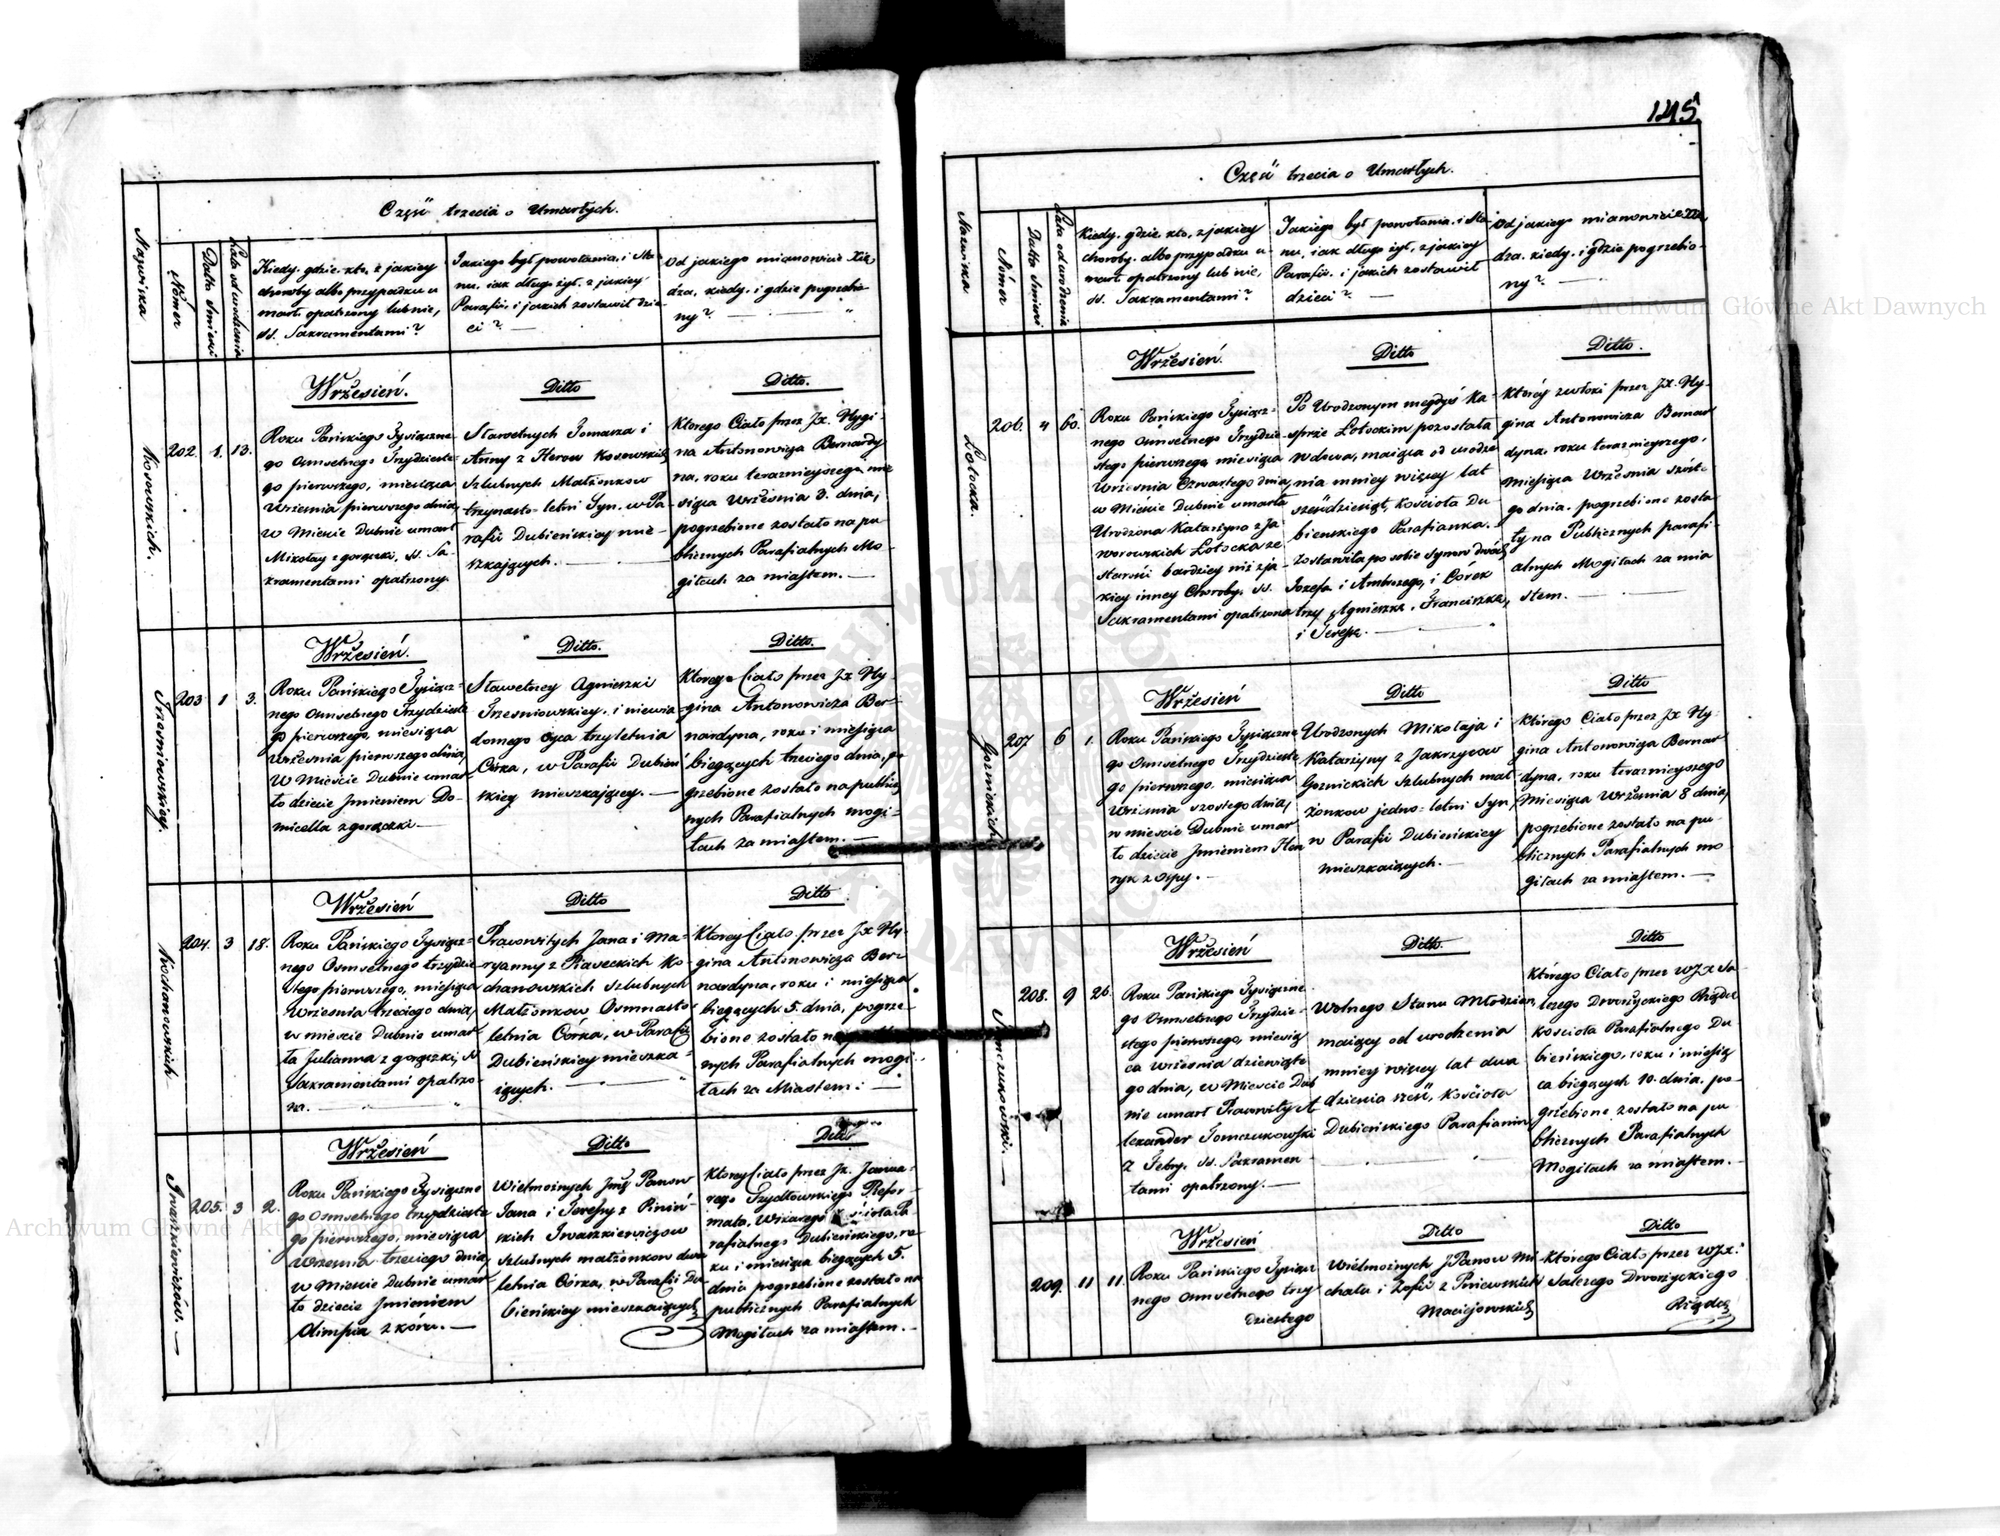 Część trzecia o Umarłych.
Nazwiska
Nómer
Datta Śmierci
Lata od urodzenia
Kiedy, gdzie, kto, z jakiey
choroby albo przypadku u
marł, opatrzony lub nie,
SS. Sakramentami?
Jakiego był powołania, i Sta-
nu, jak długo żył, z jakiey
Parafii, i jakich zostawił dzie-
ci? —
Od jakiego mianowicie Xię
dza, kiedy, i gdzie pogrzebio
ny? —
Kosowskich.
202. 1. 13.
Wrzesień.
Roku Pańskiego Tysiączne-
go Ośmsetnego Trzydzieste-
go pierwszego, miesiąca
Września pierwszego dnia,
w Mieście Dubnie umarł
Mikołay z gorączki, SS. Sa-
kramentami opatrzony.
Ditto
Sławetnych Tomasza i
Anny z Herow Kosowskich
Szlubnych Małżonkow
trzynasto-letni Syn, w Pa-
rafii Dubieńskiey mie-
szkających. —
Ditto.
Ktorego Ciało przez Jx. Hygi-
na Antonowicza Bernardy
na, roku teraznieyszego mie
siąca Września 3. dnia,
pogrzebione zostało na pu-
blicznych Parafialnych Mo-
giłach za miastem. —
Trześniowskiey.
203 1 3.
Wrzesień.
Roku Pańskiego Tysiącz-
nego Ośmsetnego Trzydzieste
go pierwszego, miesiąca
Września pierwszego dnia,
W Mieście Dubnie umar-
ło dziecie Jmieniem Do-
micella z gorączki —
Ditto.
Sławetney Agnieszki
Trześniowskiey, i niewia-
domego Oyca trzyletnia
Córka, w Parafii Dubień
skiey mieszkającey. —
Ditto.
Ktorego Ciało przez Jx Hy-
gina Antonowicza Ber-
nardyna, roku i miesiąca
bieżących trzeciego dnia, po
grzebione zostało na publicz
nych Parafialnych mogi-
łach za miastem. —
Kochanowskich
204. 3 18.
Wrzesień
Roku Pańskiego Tysiącz-
nego Ośmsetnego trzydzie
stego pierwszego, miesiąca
Września trzeciego dnia,
w mieście Dubnie umar-
ła Julianna z gorączki, SS
Sakramentami opatrzo-
na. —
Ditto
Pracowitych Jana i Ma-
ryanny z Piaseckich Ko-
chanowskich szlubnych
Małżonkow Ośmnasto-
letnia Córka, w Parafii
Dubieńskiey mieszka-
iących. —
Ditto
Ktorey Ciało przez Jx Hy-
gina Antonowicza Ber-
nardyna, roku i miesiąca
bieżących 5. dnia, pogrze-
bione zostało na
nych Parafialnych mogi-
łach za Miastem. —
Iwaszkiewiczów. —
205. 3 2.
Wrzesień
Roku Pańskiego Tysiączne
go Ośmsetnego trzydzieste
go pierwszego, miesiąca
Września trzeciego dnia,
w Mieście Dubnie umar-
ło dziecie Jmieniem
Olimpia z kóru. —
Ditto
Wielmożnych Jmć Panow
Jana i Teressy z Piniń-
skich Iwaszkiewiczow
szlubnych małżonkow dwu
letnia Córka, w Parafii Du
bieńskiey mieszkaiących
Ditto
Ktorey Ciało przez Jx. Janua-
rego Szydłowskiego Refor-
mata, Wikarego Kościoła Pa
rafialnego Dubieńskiego, ro-
ku i miesiąca bieżących 5.
dnia pogrzebione zostało na
publicznych Parafialnych
Mogiłach za miastem. —
145
Część trzecia o Umarłych.
Nazwiska
Nómer
Datta Śmierci
Lata od urodzenia
Kiedy, gdzie, kto, z jakiey
choroby, albo przypadku u
marł, opatrzony lub nie,
SS. Sakramentami?
Jakiego był powołania, i Sta-
nu, iak długo żył, z jakiey
Parafii, i jakich zostawił
dzieci? —
Od jakiego mianowicie Xię
dza, kiedy, i gdzie pogrzebio-
ny? —
Łotocka.
206. 4 60.
Wrzesień.
Roku Pańskiego Tysiącz-
nego Ośmsetnego Trzydzie-
stego pierwszego miesiąca
Września Czwartego dnia,
w Mieście Dubnie umarła
Urodzona Katarzyna z Ja
worowskich Łotocka ze
starości bardziey niż z ja-
kiey inney Choroby, SS.
Sakramentami opatrzona
Ditto
Po Urodzonym niegdyś Ka-
sprze Łotockim pozostała
Wdowa, maiąca od urodze
nia mniey więcey lat
sześćdziesiąt, Kościoła Du
bieńskiego Parafianka.
Zostawiła po sobie Synow dwóch
Jozefa i Ambrożego, i Córek
trzy Agnieszkę, Franciszkę,
i Teressę. —
Ditto.
Ktorey zwłoki przez Jx. Hy-
gina Antonowicza Bernar
dyna, roku teraznieyszego,
Miesiąca Września szóste-
go dnia, pogrzebione zosta
ły na Publicznych parafi-
alnych Mogiłach za mia
stem. —
Goznickich
207 6 1.
Wrzesień
Roku Pańskiego Tysiączne
go Ośmsetnego Trzydzieste
go pierwszego, miesiąca
Września szostego dnia,
w mieście Dubnie umar
ło dziecie Jmieniem Hen
ryk z Ospy. —
Ditto
Urodzonych Mikołaja i
Katarzyny z Zakrzycow
Goznickich Szlubnych mał
żonkow jedno-letni Syn,
w Parafii Dubieńskiey
mieszkaiących. —
Ditto
Którego Ciało przez Jx Hy-
gina Antonowicza Bernar
dyna, roku teraznieyszego
Miesiąca Września 8 dnia,
pogrzebione zostało na pu-
blicznych Parafialnych mo
giłach za miastem. —
208. 9 26.
Wrzesień
Roku Pańskiego Tysiączne
go Ośmsetnego Trzydzie-
stego pierwszego, miesią
ca września dziewiąte
go dnia, w Mieście Dub
nie umarł Pracowity A
lexander Tomczukowski
z Febry, SS. Sakramen
tami opatrzony. —
Ditto
Wolnego Stanu Młodzian,
maiący od urodzenia
mniey więcey lat dwa
dzieścia sześć, Kościoła
Dubieńskiego Parafianin.
Ditto
Którego Ciało przez WJx Sa-
lezego Dworzyckiego Rządcę
Kościoła Parafialnego Du
bieńskiego, roku i miesią
ca bieżących 10. dnia, po-
grzebione zostało na pu-
blicznych Parafialnych
Mogiłach za miastem. —
209. 11 11.
Wrzesień
Roku Pańskiego Tysiącz
nego Ośmsetnego trzy
dziestego
Ditto
Wielmożnych JPanow Mi
chała i Zofii z Pniewskich
Maciejowskich
Ditto
Którego Ciało przez WJx.
Salezego Dworzyckiego
Rządcę
Archiwum Główne Akt Dawnych
Archiwum Główne Akt Dawnych